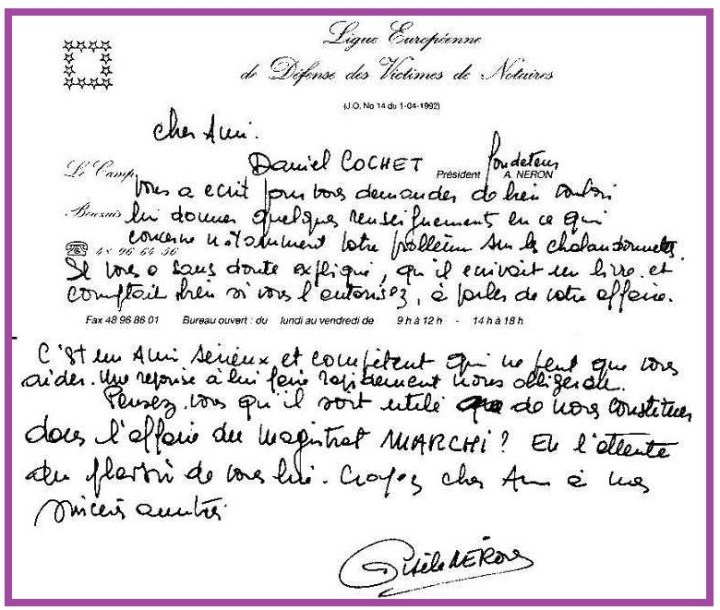 Ligue Européenne
de Défense des Victimes de Notaires
(J.O. No 14 du 1-04-1992)
cher Ami.
Daniel COCHET Président fondateur
Le Camp A. NERON
Vous a ecrit pour vous demander de bien vouloir
lui donner quelques renseignements en ce qui
concerne notamment votre problème sur les
48 96 54 56
Il vous a sans doute expliqué, qu'il ecrivait un livre et
comptait bien si vous l'autorisez, à parler de votre affaire.
Fax 48 96 86 01 Bureau ouvert : du lundi au vendredi de 9 h à 12 h - 14 h à 18 h
C'est un Ami serieux et compétent qui ne peut que vous
aider. Une reponse à lui faire rapidement nous obligerait.
Pensez vous qu'il soit utile de nous constituer
dans l'affaire du magistrat MARCHI? En l'attente
du plaisir de vous lire. Croyez cher Ami à nos
sincères amitiés
Gisèle NÉRON